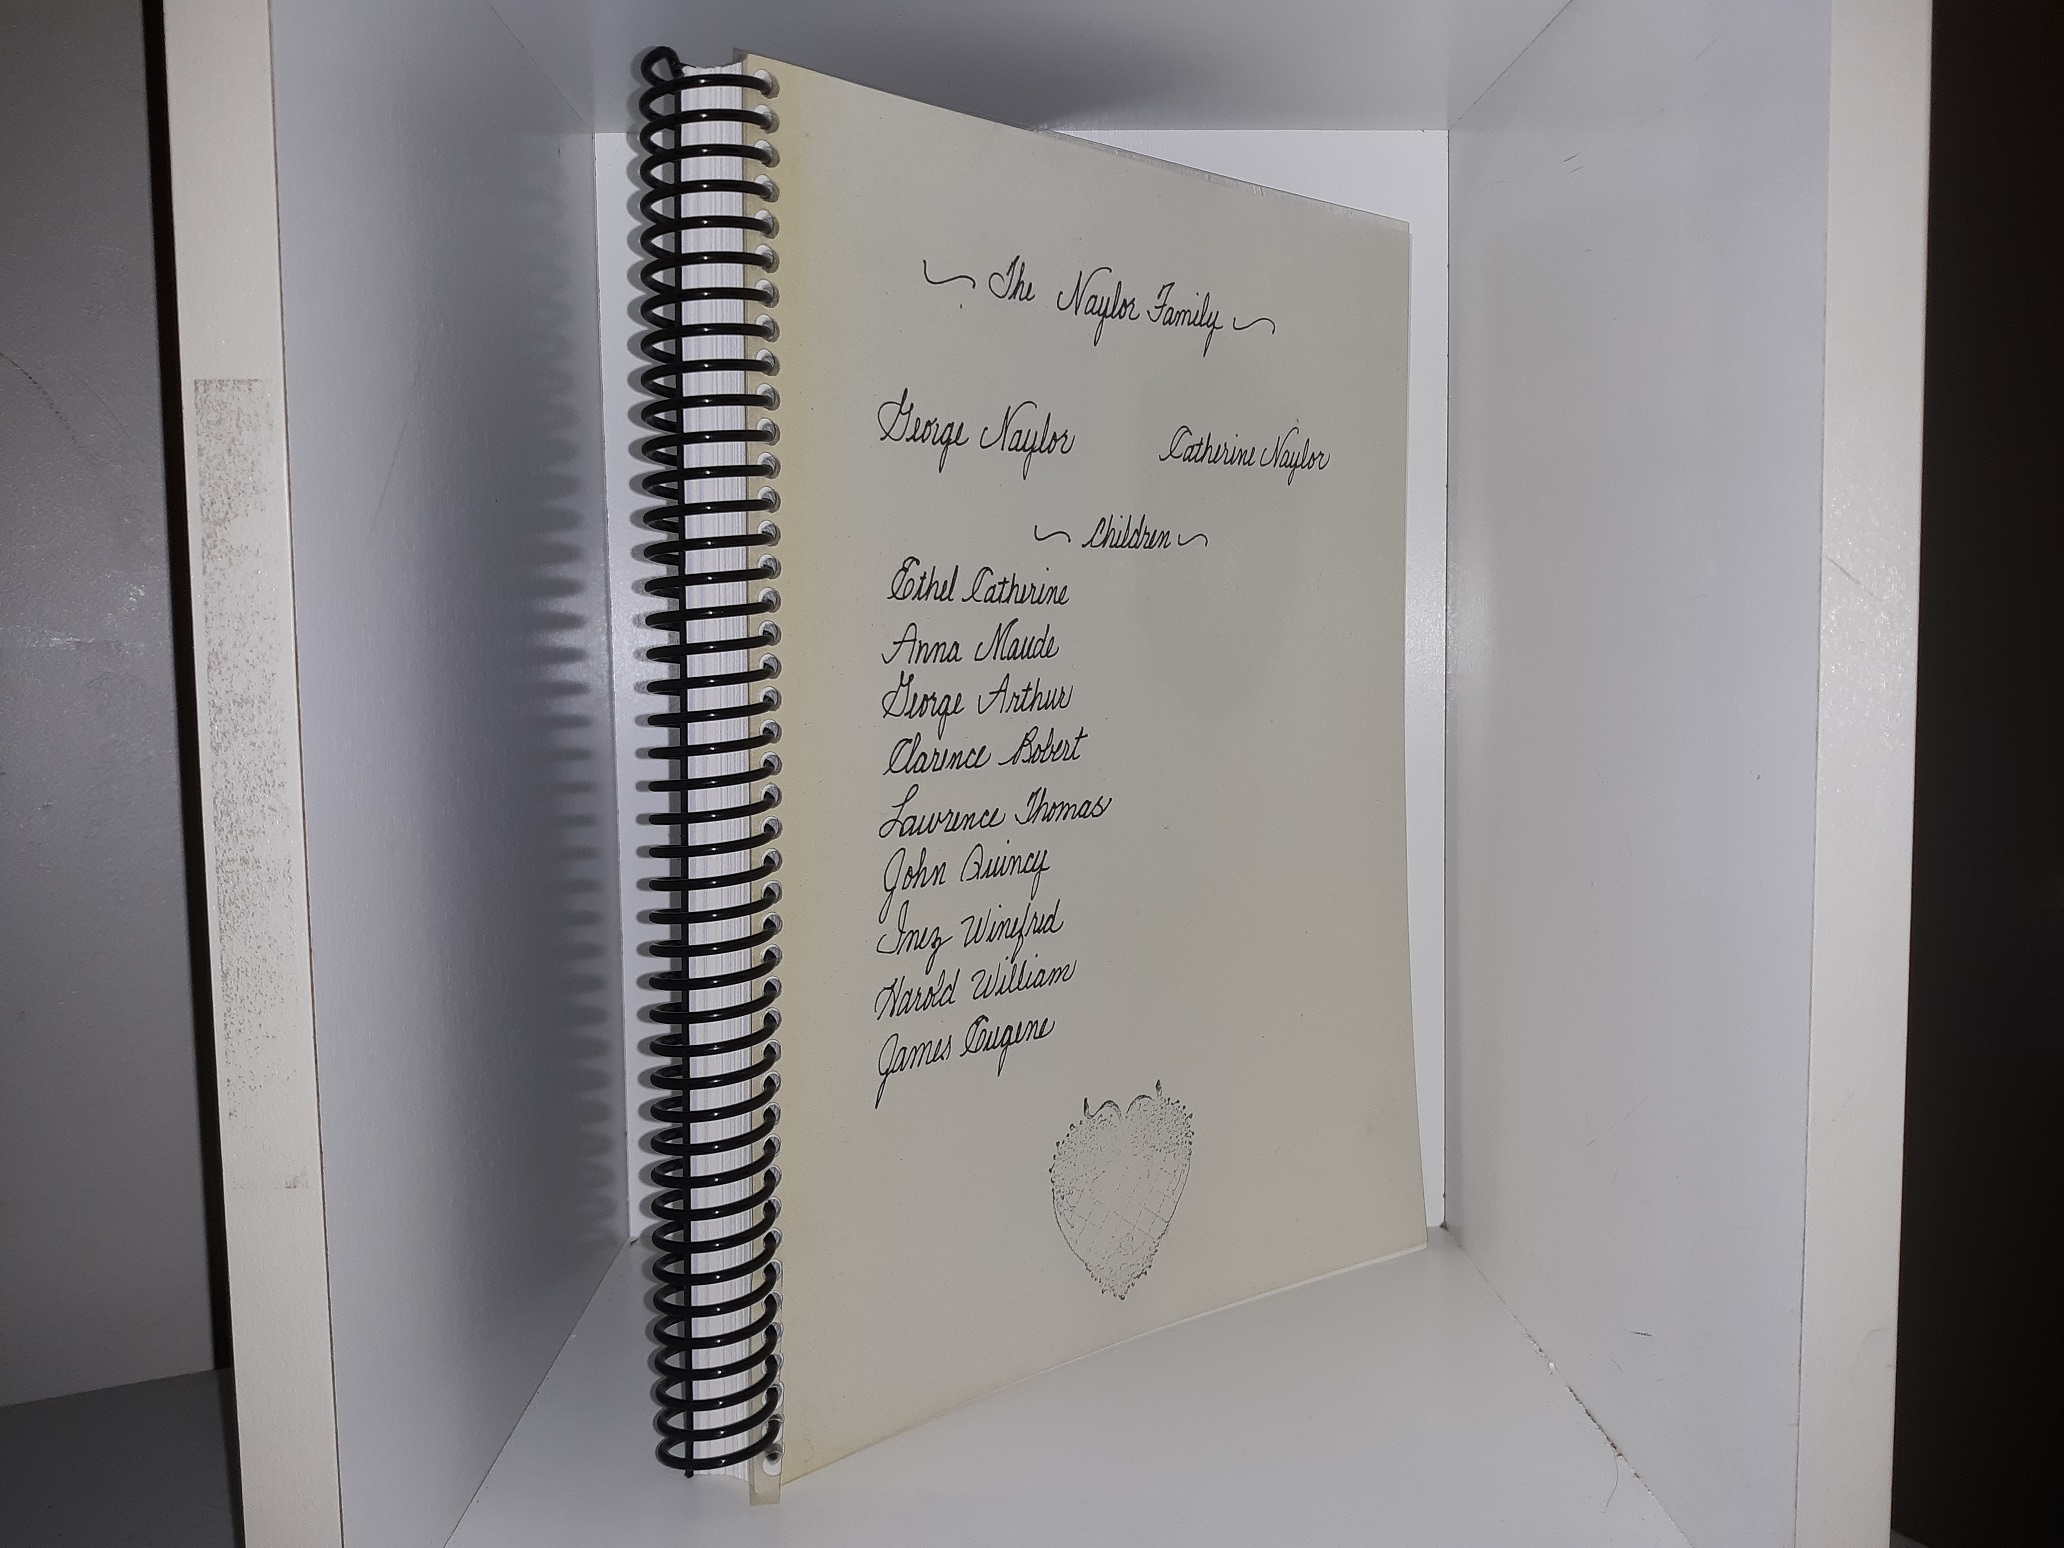 The Naylor Family
George Naylor Catherine Naylor
Children
Ethel Catherine
Anna Maude
George Arthur
Clarence Robert
Lawrence Thomas
John Quincy
Inez Winefred
Harold William
James Eugene